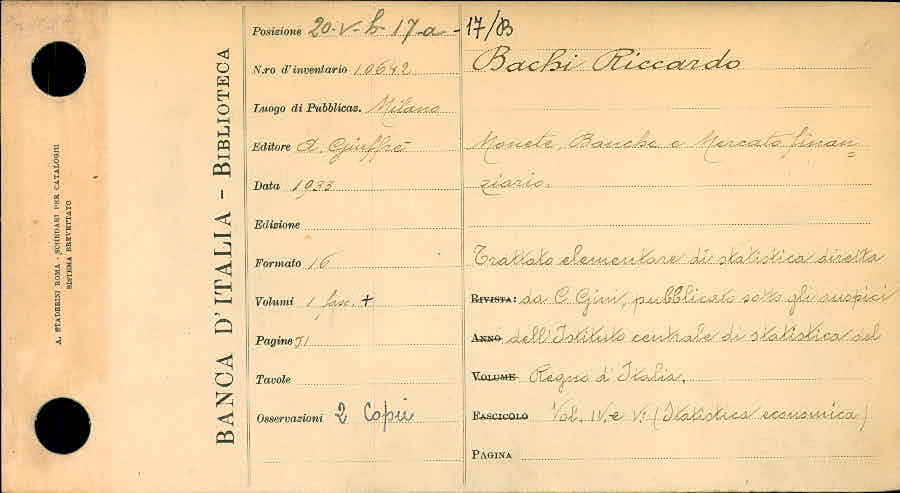 A. STADERINI ROMA - SCHEDARI PER CATALOGHI
SISTEMA BREVETTATO
BANCA D'ITALIA - BIBLIOTECA
Posizione 20-V-b-17-a - 17/B
N.ro d'inventario 10642
Luogo di Pubblicaz. Milano
Editore A. Giuffrè
Data 1933
Edizione
Formato 16
Volumi 1 fasc. +
Pagine 71
Tavole
Osservazioni 2 Copie
Bachi Riccardo
Monete, Banche e Mercato finan=
ziario.
Trattato elementare di statistica diretta
RIVISTA: da C. Gini, pubblicato sotto gli auspici
ANNO dell'Istituto centrale di statistica del
VOLUME Regno d'Italia.
FASCICOLO Vol. IV. e V. (Statistica economica)
PAGINA